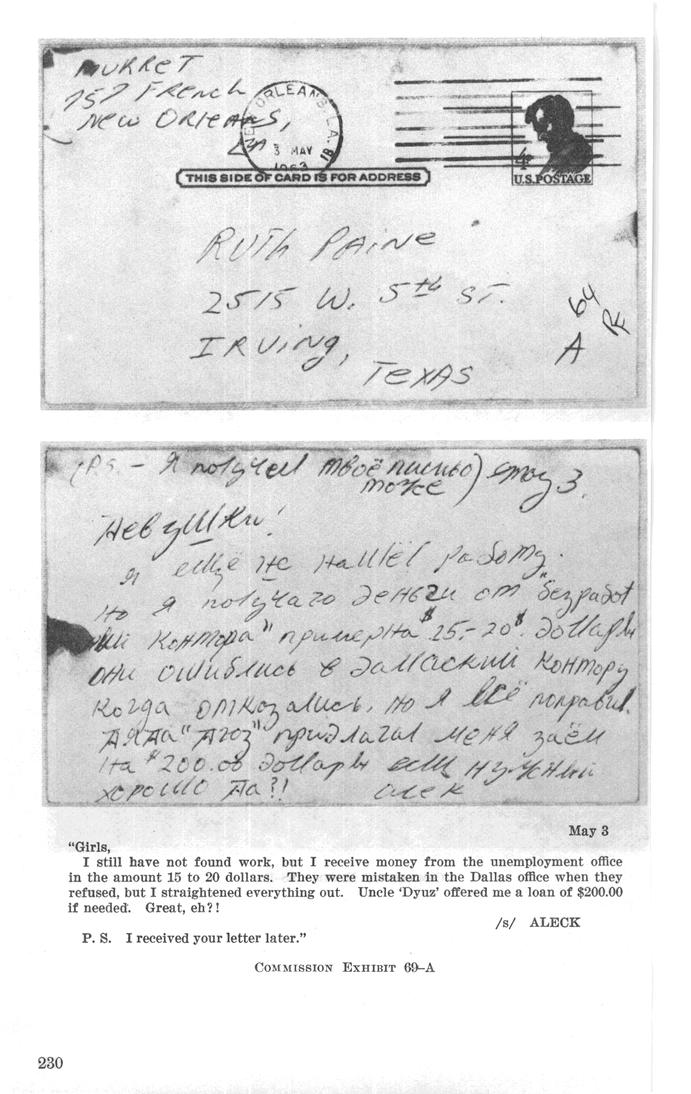 MURRET
757 FRENCH
NEW ORLEANS,
LA.
NEW ORLEANS, LA.
3 MAY
1963
THIS SIDE OF CARD IS FOR ADDRESS
4¢
U.S. POSTAGE
RUTH PAINE
2515 W. 5th ST.
IRVING,
TEXAS
64
A
(P.S. – Я получил твоё письмо)
тоже
May 3.
Девушки!
Я ещё не нашёл работу.
но я получаю деньги от "безработ
ный контора" примерна $15.–20$. доллары
они ошиблись в далаский контору
когда отказались, но я всё поправил.
дяда "Дюз" придлагал меня заём
на $200.00 доллары если нужный
хорошо да?!
Алек
May 3
"Girls,
I still have not found work, but I receive money from the unemployment office
in the amount 15 to 20 dollars. They were mistaken in the Dallas office when they
refused, but I straightened everything out. Uncle 'Dyuz' offered me a loan of $200.00
if needed. Great, eh?!
/s/ ALECK
P. S. I received your letter later."
COMMISSION EXHIBIT 69–A
230